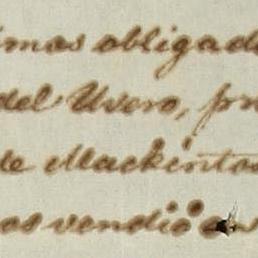 imos obligad
del Uvero, pr
de Mackintos
os vendió a